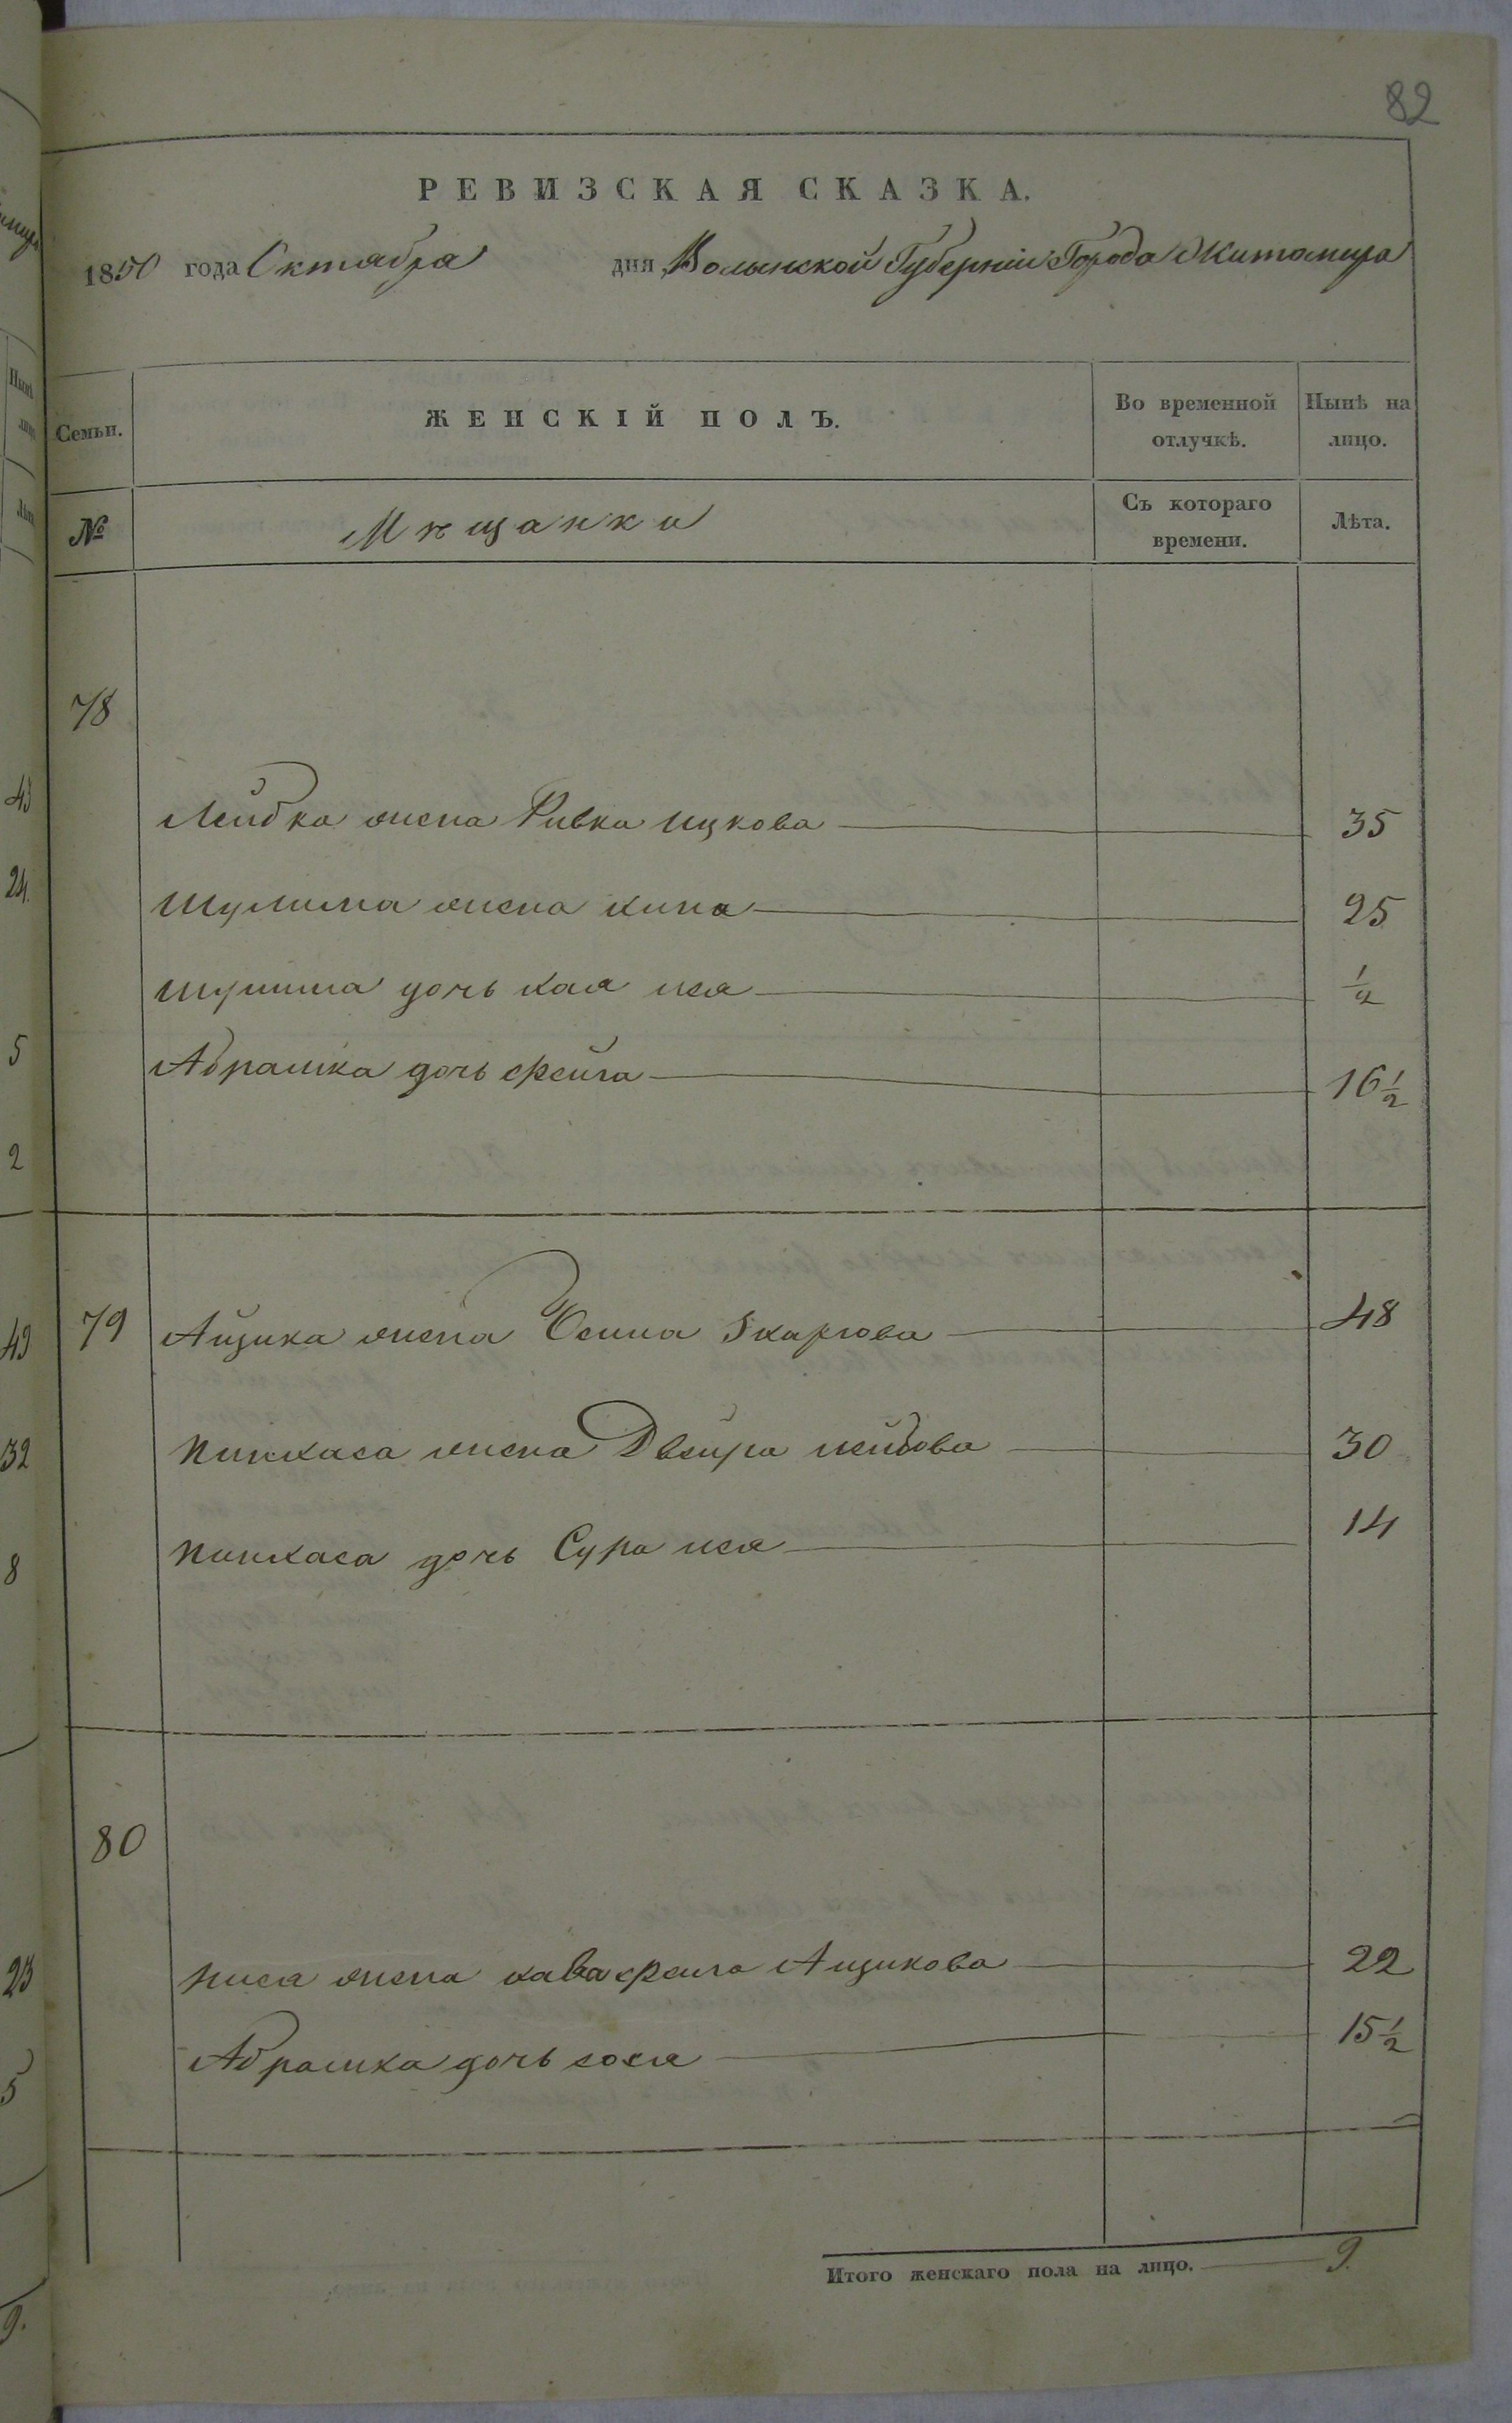 82
РЕВИЗСКАЯ СКАЗКА.
1850 года Октября дня Волынской Губерніи Города Житомира
Семьи. ЖЕНСКІЙ ПОЛЪ. Во временной отлучкѣ. Нынѣ на лицо.
№ Мѣщанки Съ котораго времени. Лѣта.
78
Лейбка жена Ривка ицкова 35
шулима жена хина 25
шулима дочь хая иея 1/2
Абрамка дочь фейга 16 1/2
79 Айзика жена 48
пинхаса жена Двейра лейбова 30
пинхаса дочь Сура лея 14
80
жена хава фейга Айзикова 22
Абрамка дочь сося 15 1/2
Итого женскаго пола на лицо. 9.